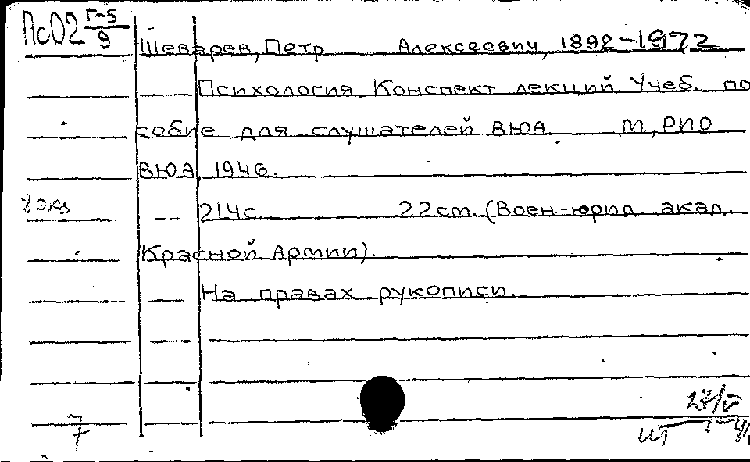 ПсО2 Г-5/9
Шеварев, Петр Алексеевич, 1892-1972
Психология Конспект лекций Учеб. по
собие для слушателей ВЮА. М, РИО
ВЮА, 1946.
214с. 22см. (Воен-юрид акад.
Красной Армии).
На правах рукописи.
7